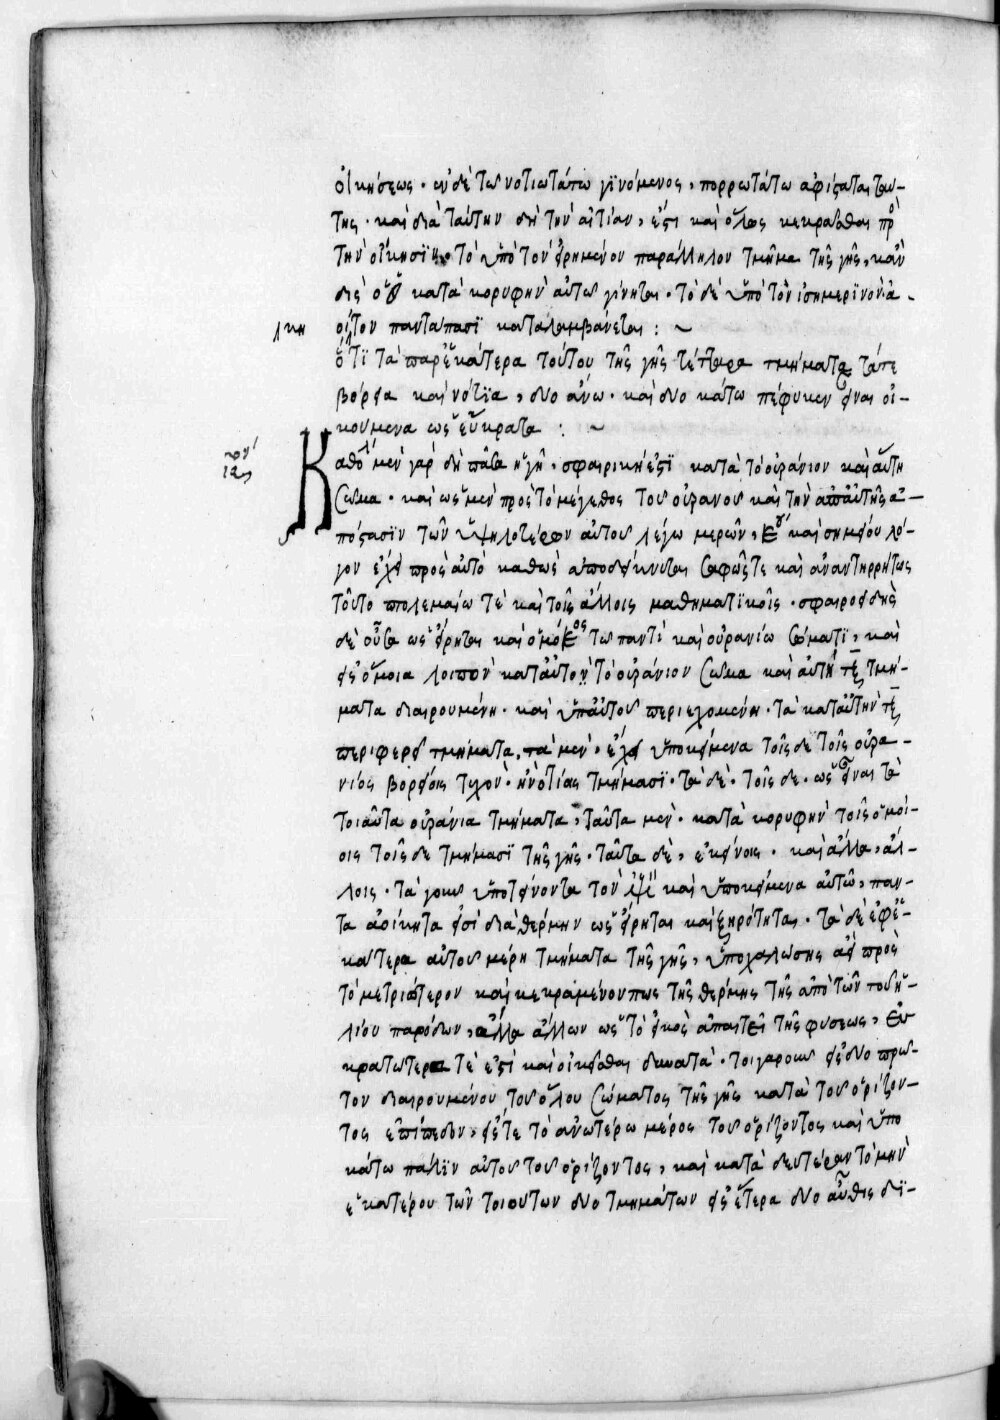 οἰκήσεως · ἐν δὲ τῶ νοτιωτάτω γϊνόμενος, πορρωτάτω ἀφίσταται ταύ-
της · καὶ διὰ ταύτην δὴ τὴν αἰτίαν, ἐστι καὶ ὅλως κεκρᾶσθαι πρὸ
τὴν οἴκησϊν · τὸ ὑπὸ τὸν εἰρημένον παράλληλον τμῆμα τῆς γῆς, κἀν
δὶς ὁ ἥλιος κατὰ κορυφὴν αὐτῶ γίνηται · τὸ δὲ ὑπὸ τὸν ἰσημερϊνὸν ἀ-
λκη
οίκητον πανταπασϊ καταλαμβάνεται : ~
ὅτϊ τὰ παρ' ἑκάτερα τούτου τῆς γῆς τέτταρα τμήματα τά τε
βόρεια καὶ νότϊα, δυο ἄνω · καὶ δυο κάτω πέφυκεν εἶναι οἰ-
κουμενα ὡς εὔκρατα : ~
Καθό μὲν γὰρ δὴ πᾶσα ἡ γῆ · σφαιρική ἐστϊ κατὰ τὸ οὐράνιον καὶ αὕτη
σῶμα · καὶ ὡς μὲν πρὸς τὸ μέγεθος τοῦ οὐρανοῦ καὶ τὴν ἀπ' αὐτῆς ἀ-
πόστασϊν τῶν ὑψηλοτέρων αὐτοῦ λέγω μερῶν, κέντρου καὶ σημείου λό-
γον ἔχει πρὸς αὐτὸ καθὼς ἀποδείκνυται σαφῶς τε καὶ ἀναντηρρήτως
τοῦτο πτολεμαίω τὲ καὶ τοῖς ἄλλοις μαθηματϊκοῖς · σφαιροειδὴς
δὲ οὖσα ὡς εἴρηται καὶ ὁμόκεντρος τῶ παντὶ καὶ οὐρανίω σώματϊ, καὶ
εἰς ὅμοια λοιπὸν κατ' αὐτὸ τὸ οὐράνιον σῶμα καὶ αὐτὴ τμή-
ματα διαιρουμένη · καὶ ὑπ' αὐτοῦ περιεχομένη · τὰ κατ' αὐτὴν
περιφερῆ τμήματα, τὰ μὲν, ἔχει ὑποκείμενα τοῖς δε τοῖς οὐρα-
νίοις βορείοις τυχὸν · ἢ νοτίοις τμήμασϊ · τὰ δὲ · τοῖς δε · ὡς εἶναι τὰ
τοιαῦτα οὐράνια τμήματα, ταῦτα μεν · κατὰ κορυφὴν τοῖς ὁμοί-
οις τοῖς δε τμήμασϊ τῆς γῆς · ταῦτα δὲ, ἐκείνοις · καὶ ἄλλα, ἄλ-
λοις · τὰ γοῦν ὑποτείνοντα τὸν καὶ ὑποκείμενα αὐτῶ, πάν-
τα ἀοίκητα εἰσὶ διὰ θέρμην ὡς εἴρηται καὶ ξηρότητα · τὰ δὲ ἐφ' ἑ-
κάτερα αὐτοῦ μέρη τμήματα τῆς γῆς, ὑποχαλώσης ἀεὶ πρὸς
τὸ μετριώτερον καὶ κεκραμένον πως τῆς θέρμης τῆς ἀπὸ τῶν τοῦ ἡ-
λίου παρόδων, ἄλλα ἄλλων ὡς τὸ εἰκὸς ἀπαιτεῖ τῆς φύσεως, εὐ-
κρατώτερά τὲ ἐστὶ καὶ οἰκεῖσθαι δυνατὰ · τοιγαροῦν εἰς δυο πρῶ-
τον διαιρουμένου τοῦ ὅλου σώματος τῆς γῆς κατὰ τοῦ ὁρίζον-
τος ἐπίπεδον, εἴς τε τὸ ἀνωτέρω μέρος τοῦ ὁρίζοντος καὶ ὑπο
κάτω πάλϊν αὐτοῦ τοῦ ὁρίζοντος, καὶ κατὰ δευτέραν τομὴν
ἑκατέρου τῶν τοιούτων δυο τμημάτων εἰς ἕτερα δυο αὖθις δϊ-